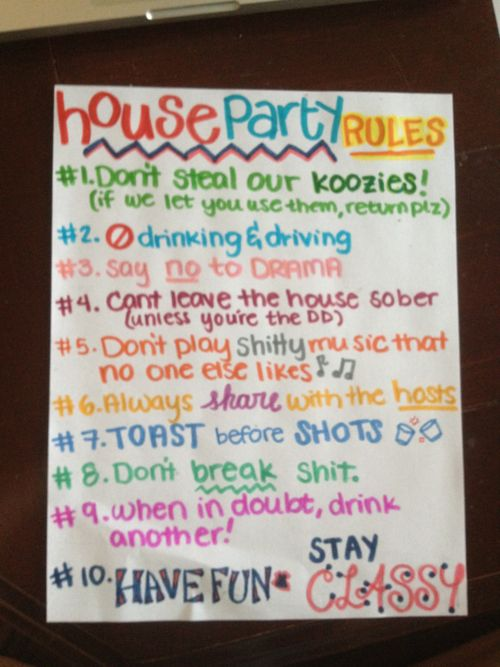 house Party RULES
#1. Don't steal our koozies!
(if we let you use them, return plz)
#2. drinking & driving
#3. say no to DRAMA
#4. Cant leave the house sober
(unless you're the DD)
#5. Don't play shitty music that
no one else likes
#6. Always share with the hosts
#7. TOAST before SHOTS
#8. Don't break shit.
#9. when in doubt, drink
another!
#10. HAVE FUN STAY CLASSY